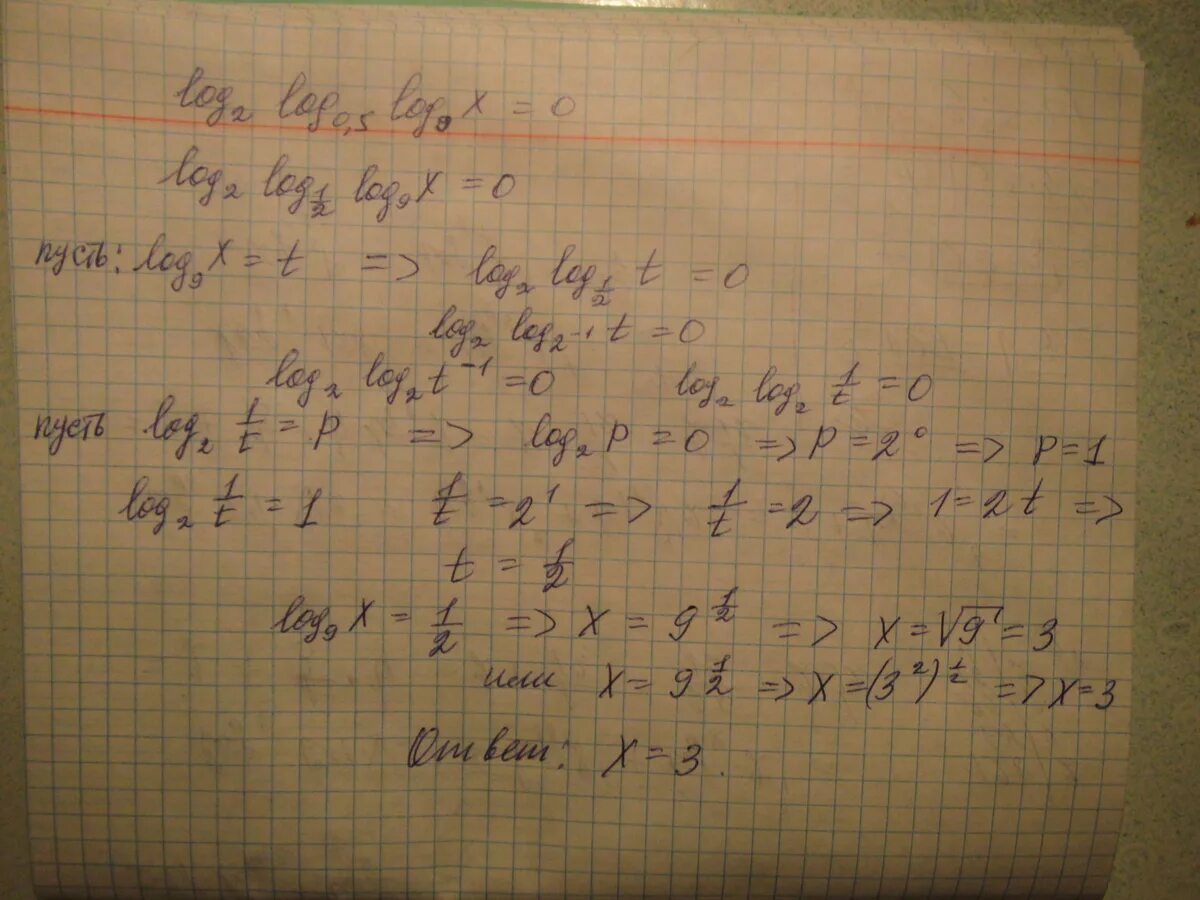 log₂ log₀,₅ log₉ x = 0
log₂ log_{1/2} log₉ x = 0
пусть: log₉ x = t => log₂ log_{1/2} t = 0
log₂ log_{2⁻¹} t = 0
log₂ log₂ t⁻¹ = 0 log₂ log₂ 1/t = 0
пусть log₂ 1/t = p => log₂ p = 0 => p = 2⁰ => p = 1
log₂ 1/t = 1 1/t = 2¹ => 1/t = 2 => 1 = 2t =>
t = 1/2
log₉ x = 1/2 => x = 9^{1/2} => x = √9 = 3
или x = 9^{1/2} => x = (3²)^{1/2} => x = 3
Ответ: x = 3.